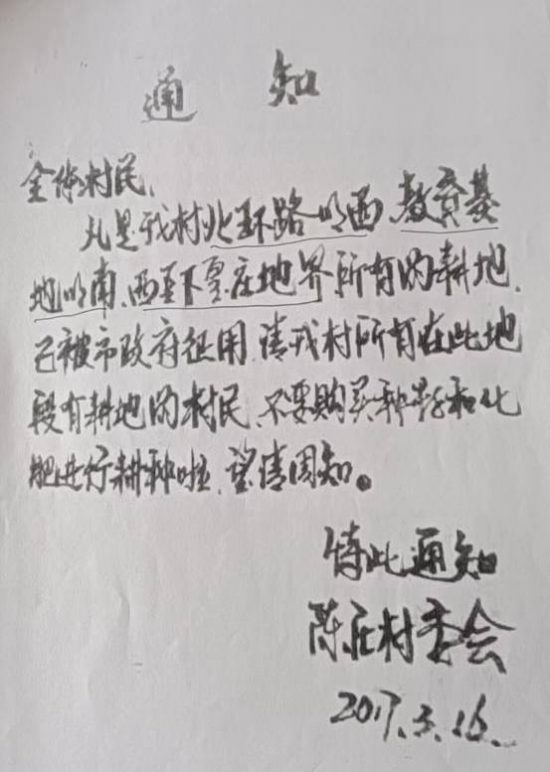 通知
全体村民、
凡是我村北环路以西、教育基
地以南、西至下夏庄地界所有的耕地、
已被市政府征用、请我村所有在此地
段有耕地的村民、不要购买种子和化
肥进行耕种啦、望请周知。
特此通知
陈庄村委会
2017.3.16.